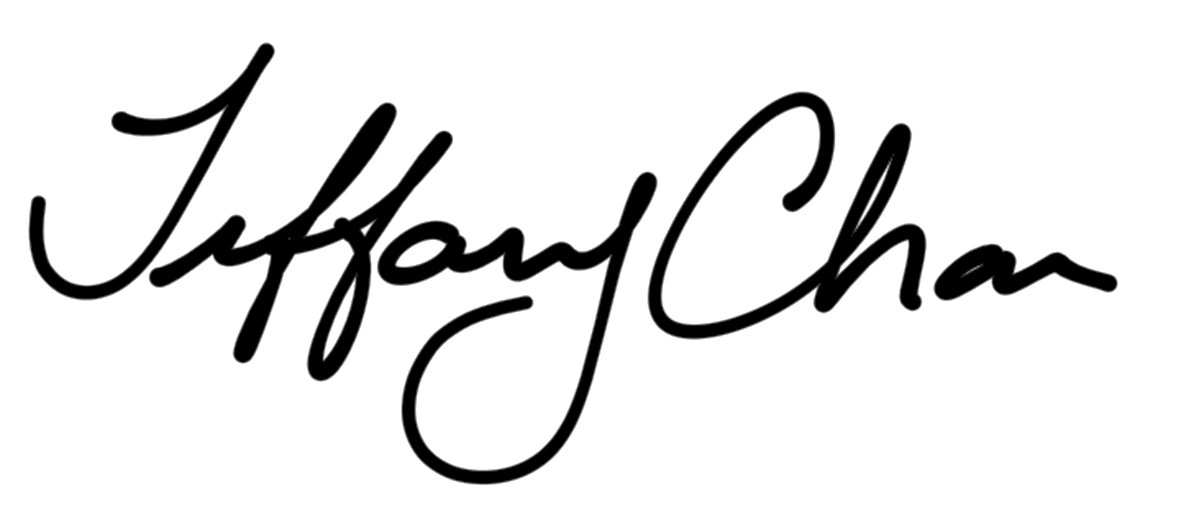 Tiffany Chan